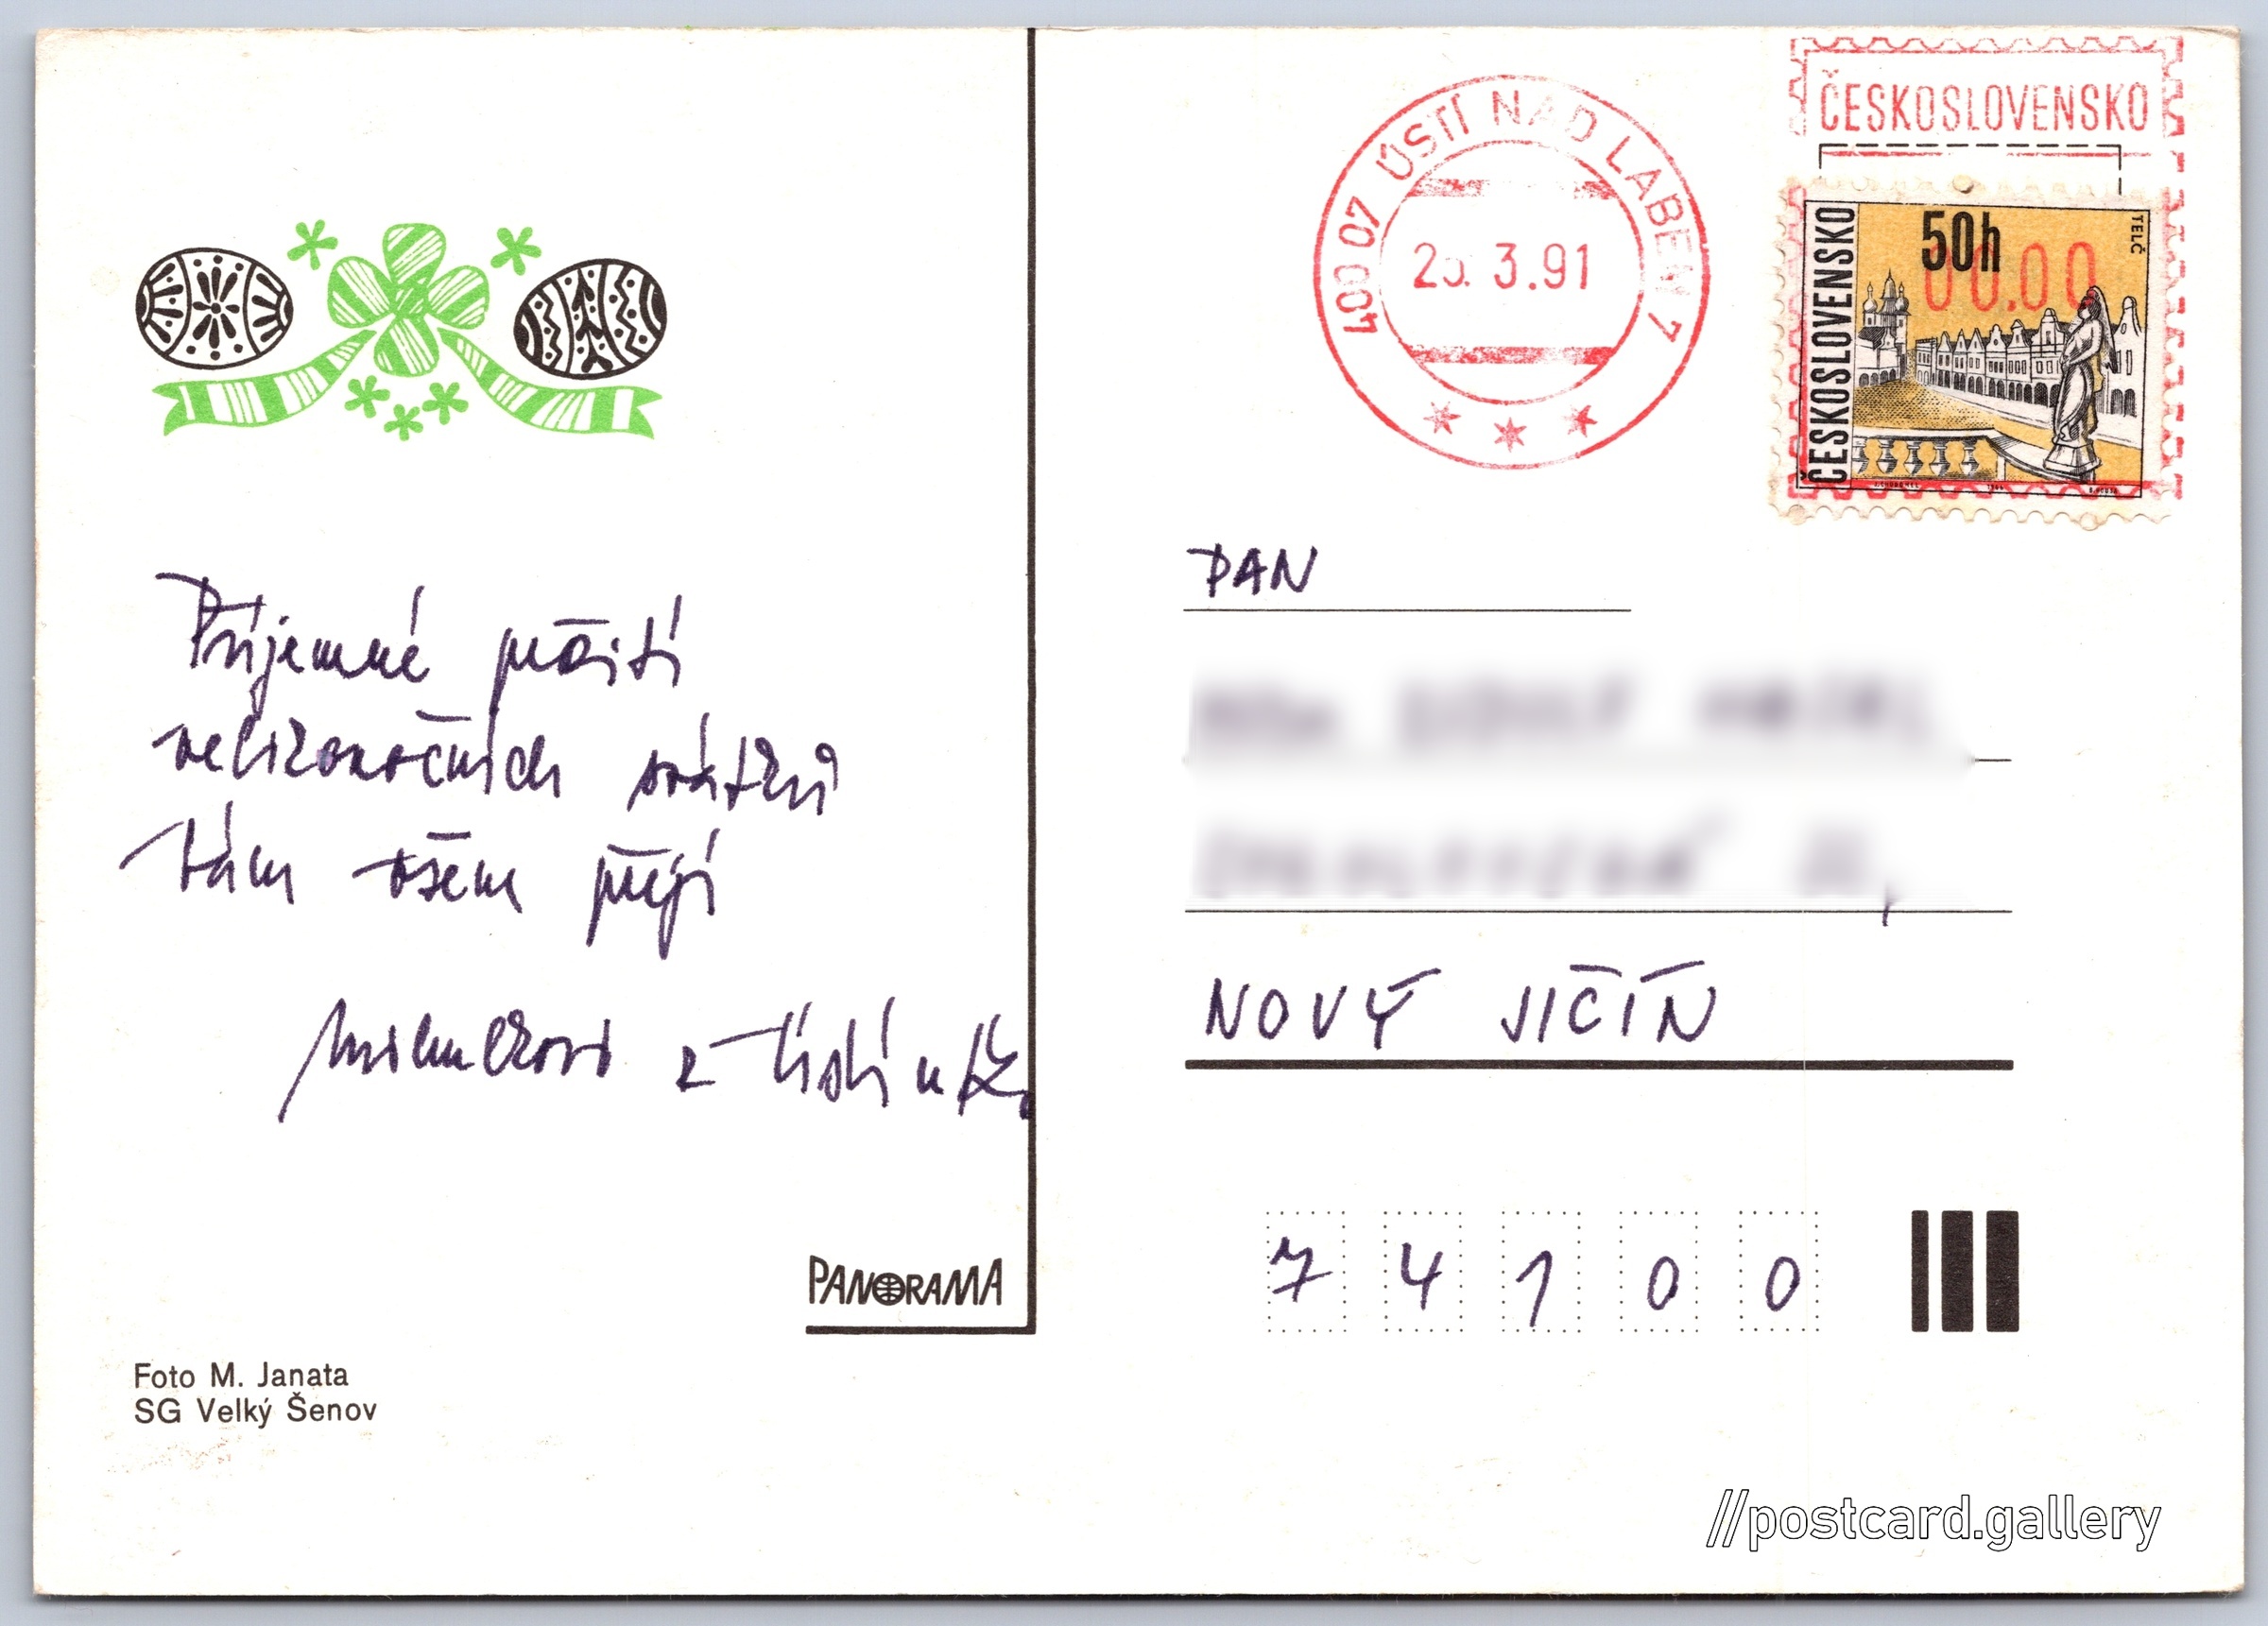 Příjemné prožití
velikonočních svátků
Vám všem přejí
z Ústí n/L.
PANORAMA
Foto M. Janata
SG Velký Šenov
400 07 ÚSTÍ NAD LABEM 7
3.91
ČESKOSLOVENSKO
ČESKOSLOVENSKO
50h
00.00
TELČ
PAN
NOVÝ JIČÍN
7 4 1 0 0
//postcard.gallery